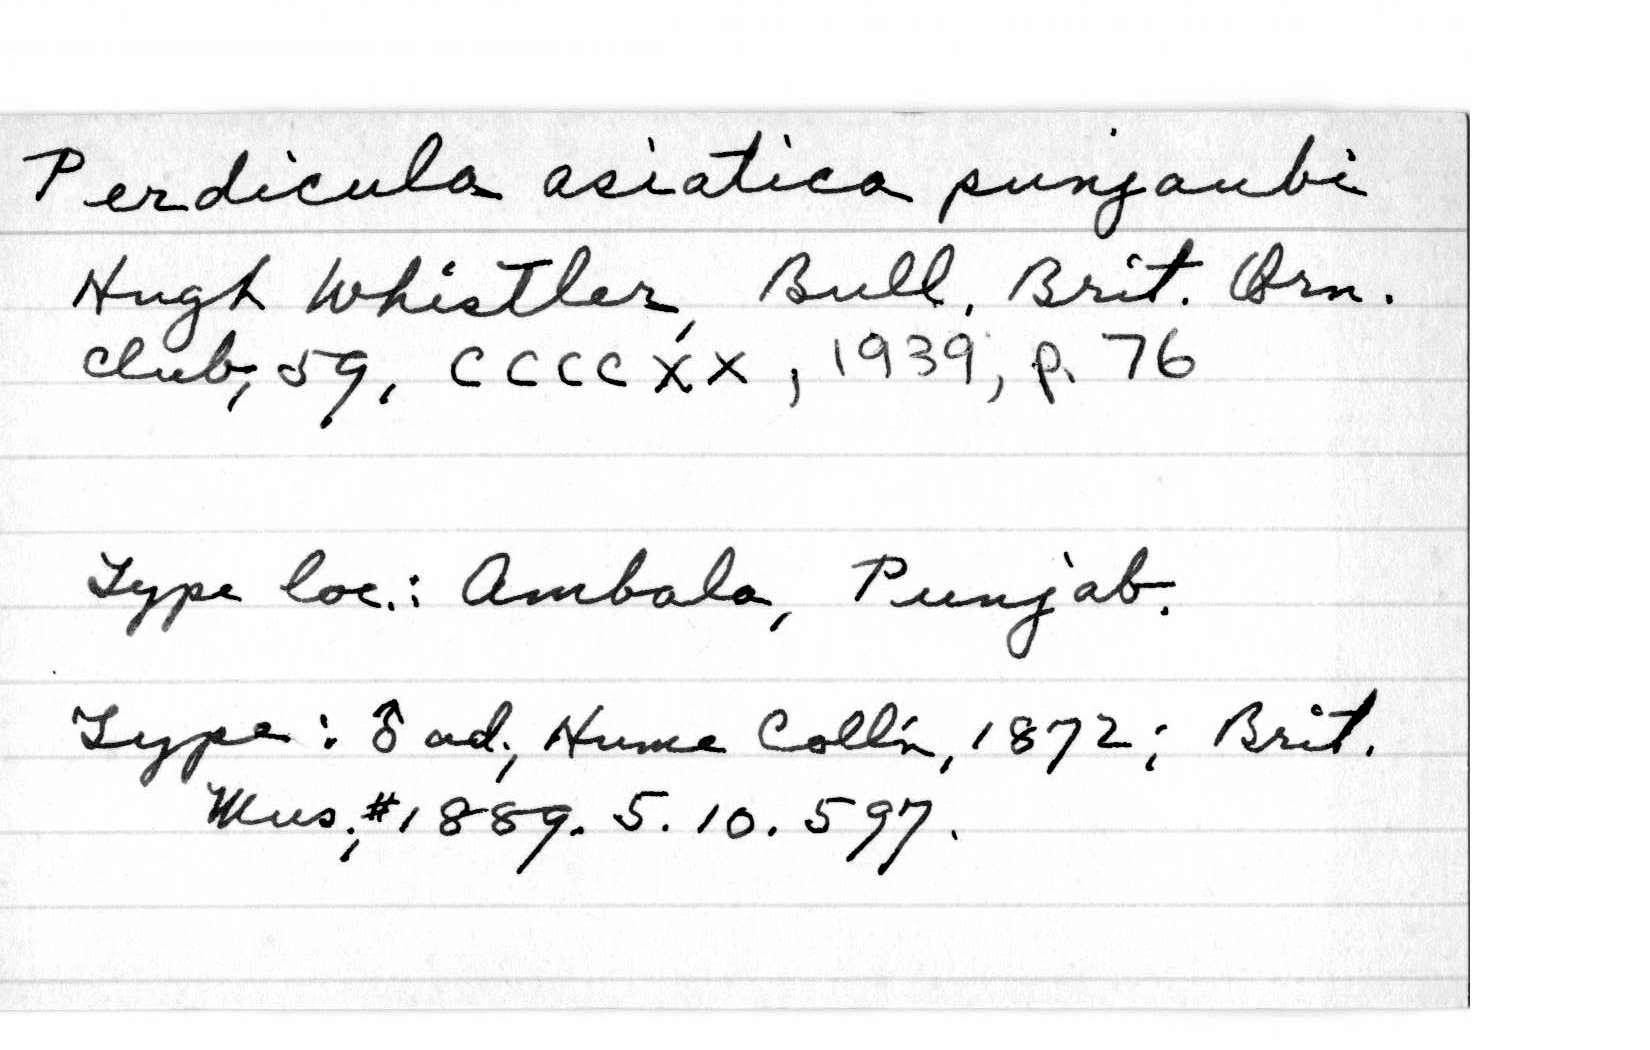 Perdicula asiatica punjaubi
Hugh Whistler, Bull. Brit. Orn.
Club, 59, CCCCXX, 1939, p. 76
Type loc.: Ambala, Punjab.
Type: ♂ ad., Hume Coll'n, 1872; Brit.
Mus., #1889.5.10.597.